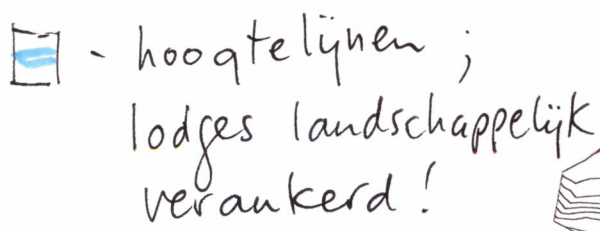 - hoogtelijnen ;
lodges landschappelijk
verankerd !